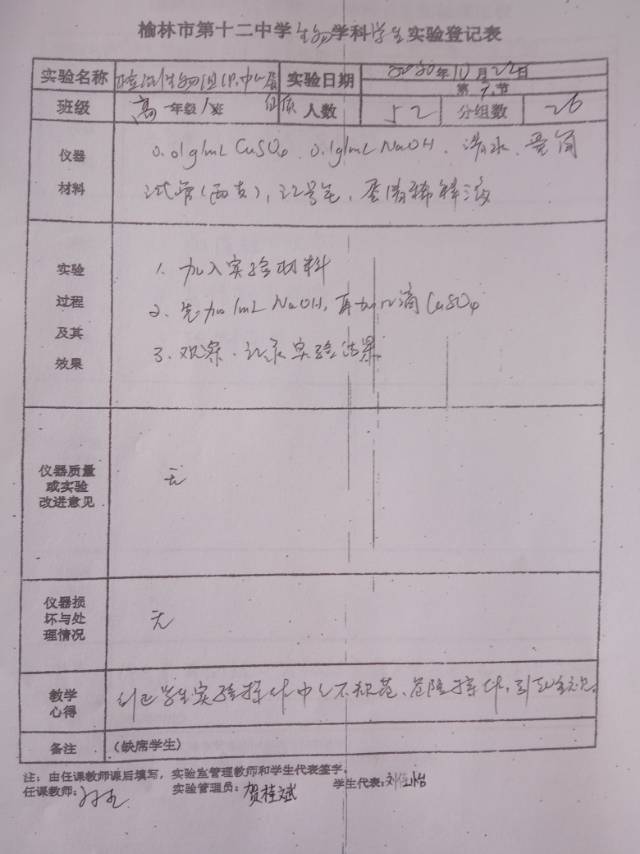 榆林市第十二中学生物学科学生实验登记表
实验名称 检测生物组织中的蛋白质 实验日期 2020年10月22日
第9节
班级 高一年级1班 人数 52 分组数 26
仪器材料 0.01g/mL CuSO4、0.1g/mL NaOH、清水、量筒
试管(两支),记号笔,蛋清稀释液
实验过程及其效果
1、加入实验材料
2、先加1mL NaOH,再加 滴CuSO4
3、观察、记录实验结果
仪器质量或实验改进意见 无
仪器损坏与处理情况 无
教学心得 纠正学生实验操作中 不规范、危险操作,
备注 (缺席学生)
注:由任课教师课后填写,实验室管理教师和学生代表签字。
任课教师: 实验管理员:贺桂斌 学生代表:刘 怡